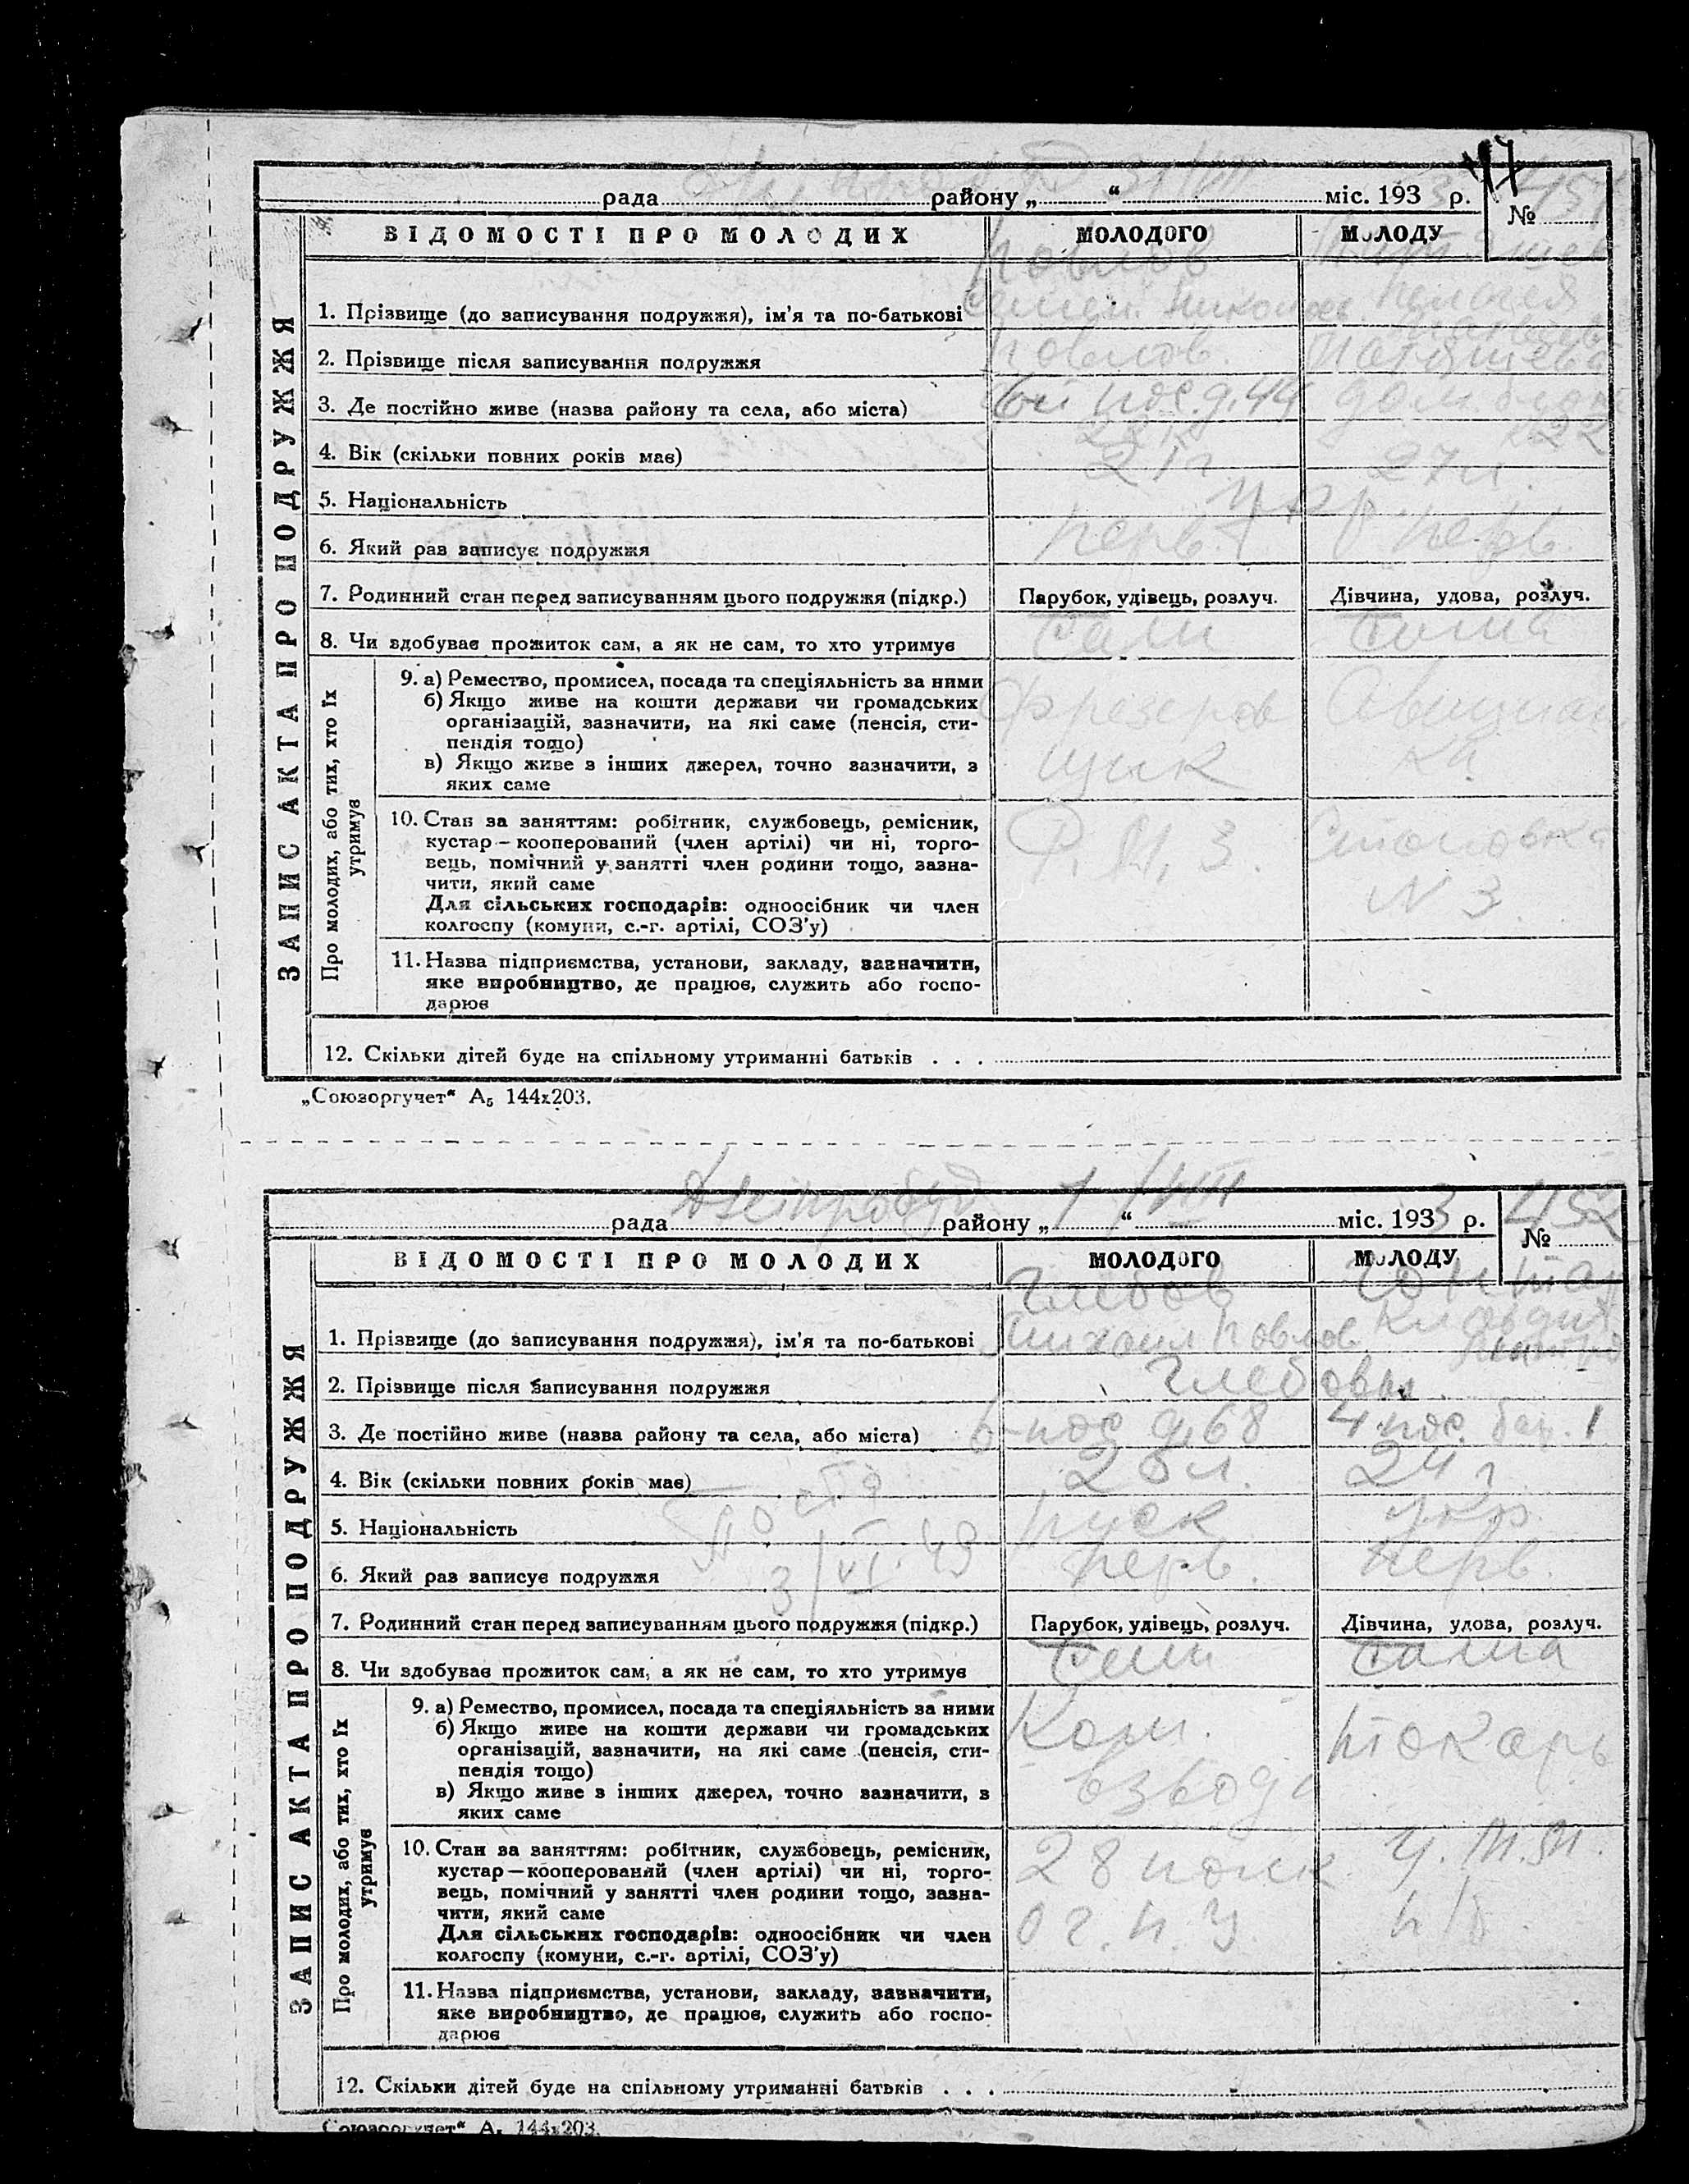 47
рада района „ “ міс. 193 3 р. № 451
ВІДОМОСТІ ПРО МОЛОДИХ МОЛОДОГО МОЛОДУ
ЗАПИС АКТА ПРО ПОДРУЖЖЯ
Павлов
1. Прізвище (до записування подружжя), ім'я та по-батькові Пелагея
2. Прізвище після записування подружжя Павлов
3. Де постійно живе (назва району та села, або міста) 6й пос. д. 44 дом
4. Вік (скільки повних років має) 21 г 27 л.
5. Національність укр
6. Який раз записує подружжя перв перв.
7. Родинний стан перед записуванням цього подружжя (підкр.) Парубок, удівець, розлуч. Дівчина, удова, розлуч.
8. Чи здобуває прожиток сам, а як не сам, то хто утримує сам сама
Про молодих, або тих, хто їх утримує
9. а) Ремество, промисел, посада та спеціяльність за ними
б) Якщо живе на кошти держави чи громадських
організацій, зазначити, на які саме (пенсія, сти-
пендія тощо)
в) Якщо живе з інших джерел, точно зазначити, з
яких саме
10. Стан за заняттям: робітник, службовець, ремісник,
кустар – кооперований (член артілі) чи ні, торго-
вець, помічний у занятті член родини тощо, зазна-
чити, який саме
Для сільських господарів: одноосібник чи член
колгоспу (комуни, с.-г. артілі, СОЗ'у)
Р. М. З. Столовка
N 3.
11. Назва підприємства, установи, закладу, зазначити,
яке виробництво, де працює, служить або госпо-
дарює
12. Скільки дітей буде на спільному утриманні батьків . . .
„Союзоргучет“ А₅ 144х203.
рада Дніпробуд району „ 1 “ VIII міс. 193 3 р. № 452
ВІДОМОСТІ ПРО МОЛОДИХ МОЛОДОГО МОЛОДУ
ЗАПИС АКТА ПРО ПОДРУЖЖЯ
Глебов
1. Прізвище (до записування подружжя), ім'я та по-батькові Михаил Павлов. Клавдия
2. Прізвище після записування подружжя Глебовы
3. Де постійно живе (назва району та села, або міста) 6 пос д. 68 4 пос. бар. 1
4. Вік (скільки повних років має) 24 г
5. Національність руск укр.
3/VI. 49
6. Який раз записує подружжя перв. перв.
7. Родинний стан перед записуванням цього подружжя (підкр.) Парубок, удівець, розлуч. Дівчина, удова, розлуч.
8. Чи здобуває прожиток сам, а як не сам, то хто утримує сам сама
Про молодих, або тих, хто їх утримує
9. а) Ремество, промисел, посада та спеціяльність за ними
б) Якщо живе на кошти держави чи громадських
організацій, зазначити, на які саме (пенсія, сти-
пендія тощо)
в) Якщо живе з інших джерел, точно зазначити, з
яких саме
Ком. токарь
взвода
10. Стан за заняттям: робітник, службовець, ремісник,
кустар – кооперований (член артілі) чи ні, торго-
вець, помічний у занятті член родини тощо, зазна-
чити, який саме
Для сільських господарів: одноосібник чи член
колгоспу (комуни, с.-г. артілі, СОЗ'у)
28 полк
О Г. П. У.
11. Назва підприємства, установи, закладу, зазначити,
яке виробництво, де працює, служить або госпо-
дарює
12. Скільки дітей буде на спільному утриманні батьків . . .
Союзоргучет“ А₅ 144х203.